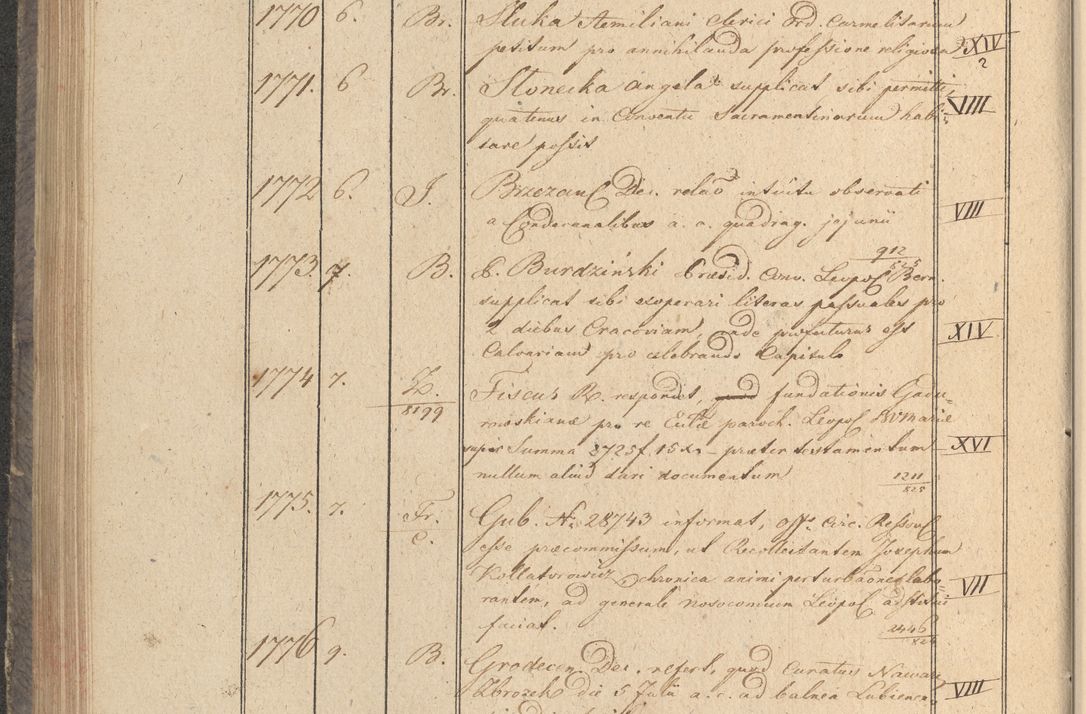 1770 6. Br. Sluka Aemiliani Clerici Ord. Carmelitarum
petitum pro annihilanda professione religiosa XIV
2
1771. 6 Br. Stonecka Angela supplicat sibi permitti,
quatenus in Conventu Sacramentinarum habi= VIII
tare possit
1772 6. J. Brzezan Dec. relaō intuitu observati
a Condecanalibus a. c. quadrag. jejunii VIII
912
525
1773. 7. B. Burdziński Præsid. Conv. Leopol Bern.
supplicat sibi exoperari literas passuales pro
2 diebus Cracoviam, unde profuturus est XIV
Calvariam pro celebrando Capitulo
1774 7. Z. Fiscus R. respondet, quod fundationis Gadu=
8199
rowskianæ pro re Eccl̄æ paroch. Leopol B V Mariæ
super Summa 2725 f. 15 x. præter testamentum XVI
nullum aliud dari documentum
1211
525
1775. 7. Fr. Gub. N. 28743 informat, Off. Circ. Ressov
C. esse præcommissum, ut Recollectantem Josephum
Kollatorowicz, chronica animi perturbaōne labo=
rantem, ad generale nosocomium Leopol adstitui VII
faciat.
2446
525
1776 9. B. Grodecen. Dec. refert, quod Curatus Nawar.
Zbrozek die 5 Julii a. c. ad balnea Lubienen. VIII